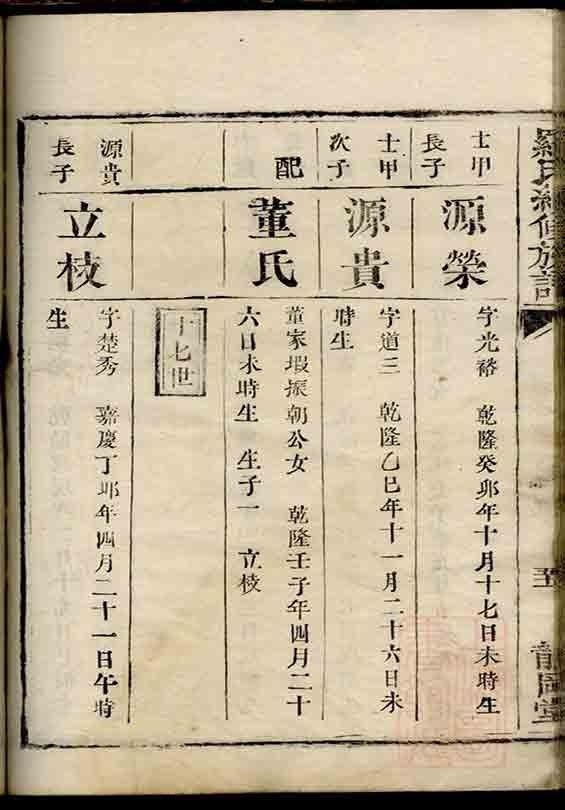 羅氏續修族譜
五
龍岡堂
士甲
長子
源榮
字光裕 乾隆癸卯年十月十七日未時生
士甲
次子
源貴
字道三 乾隆乙巳年十一月二十六日未
時生
配
董氏
董家塅振朝公女 乾隆壬子年四月二十
六日未時生 生子一 立枝
十七世
源貴
長子
立枝
字楚秀 嘉慶丁卯年四月二十一日午時
生